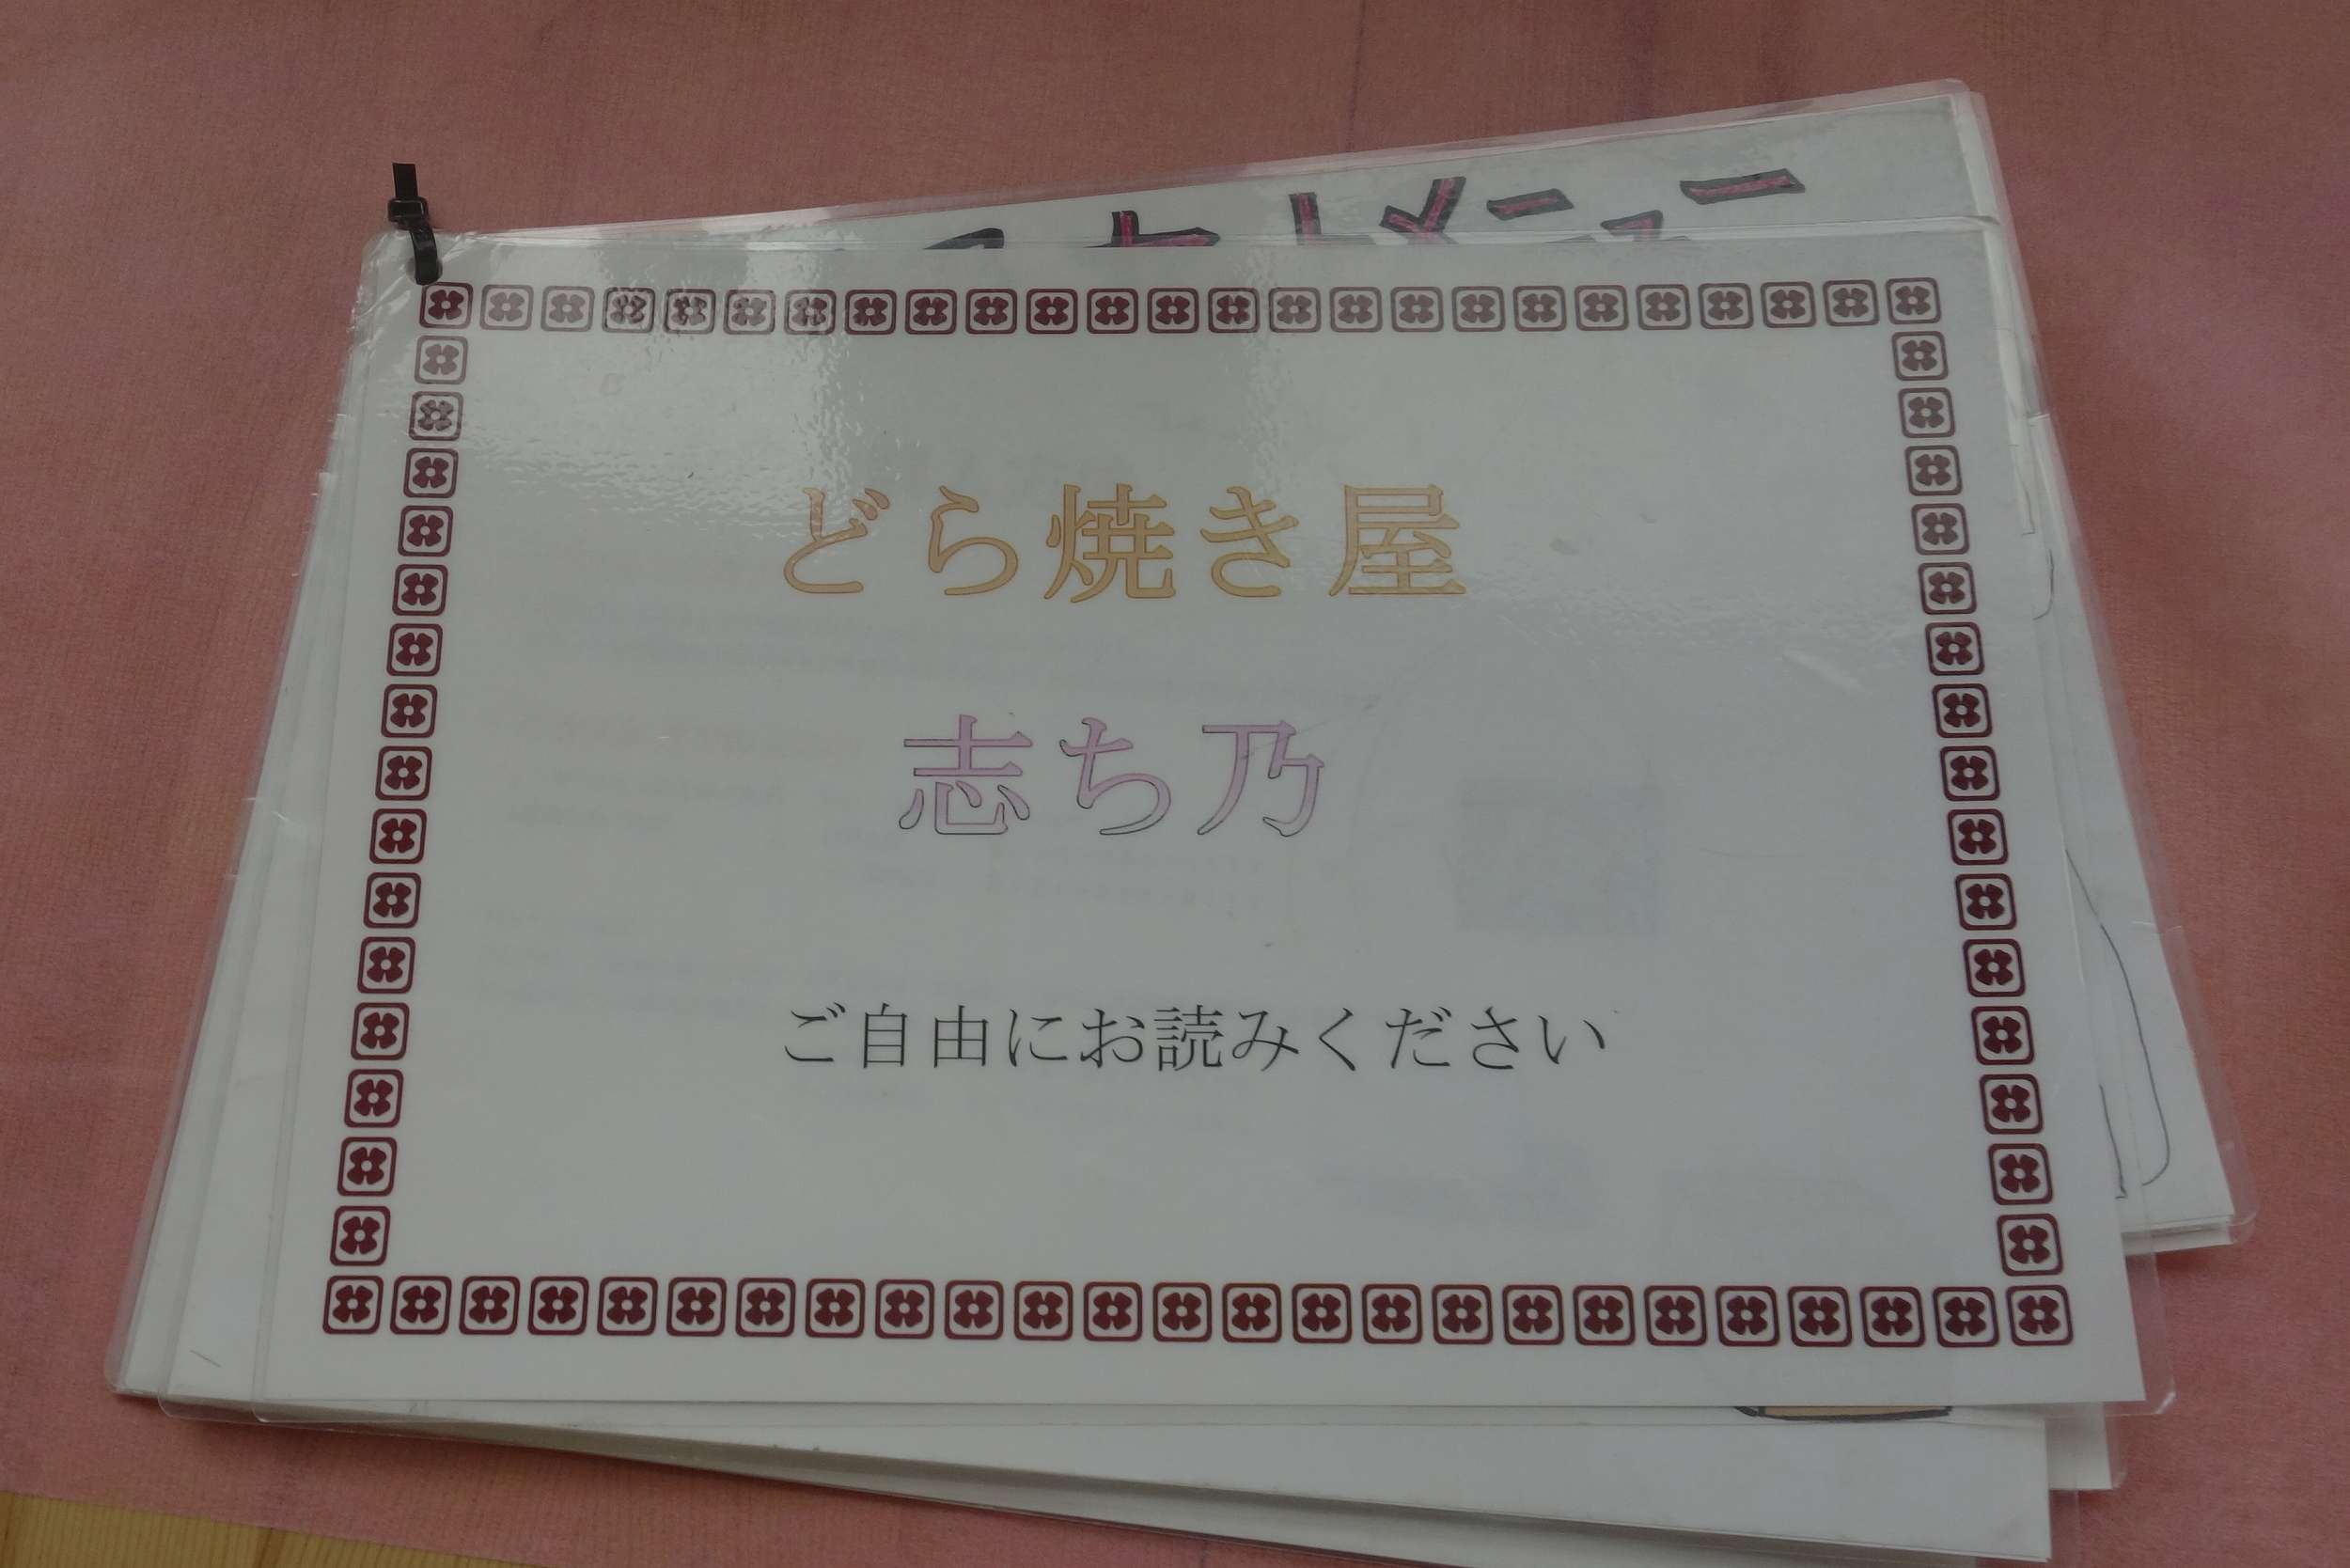 メニュー
どら焼き屋
志ち乃
ご自由にお読みください